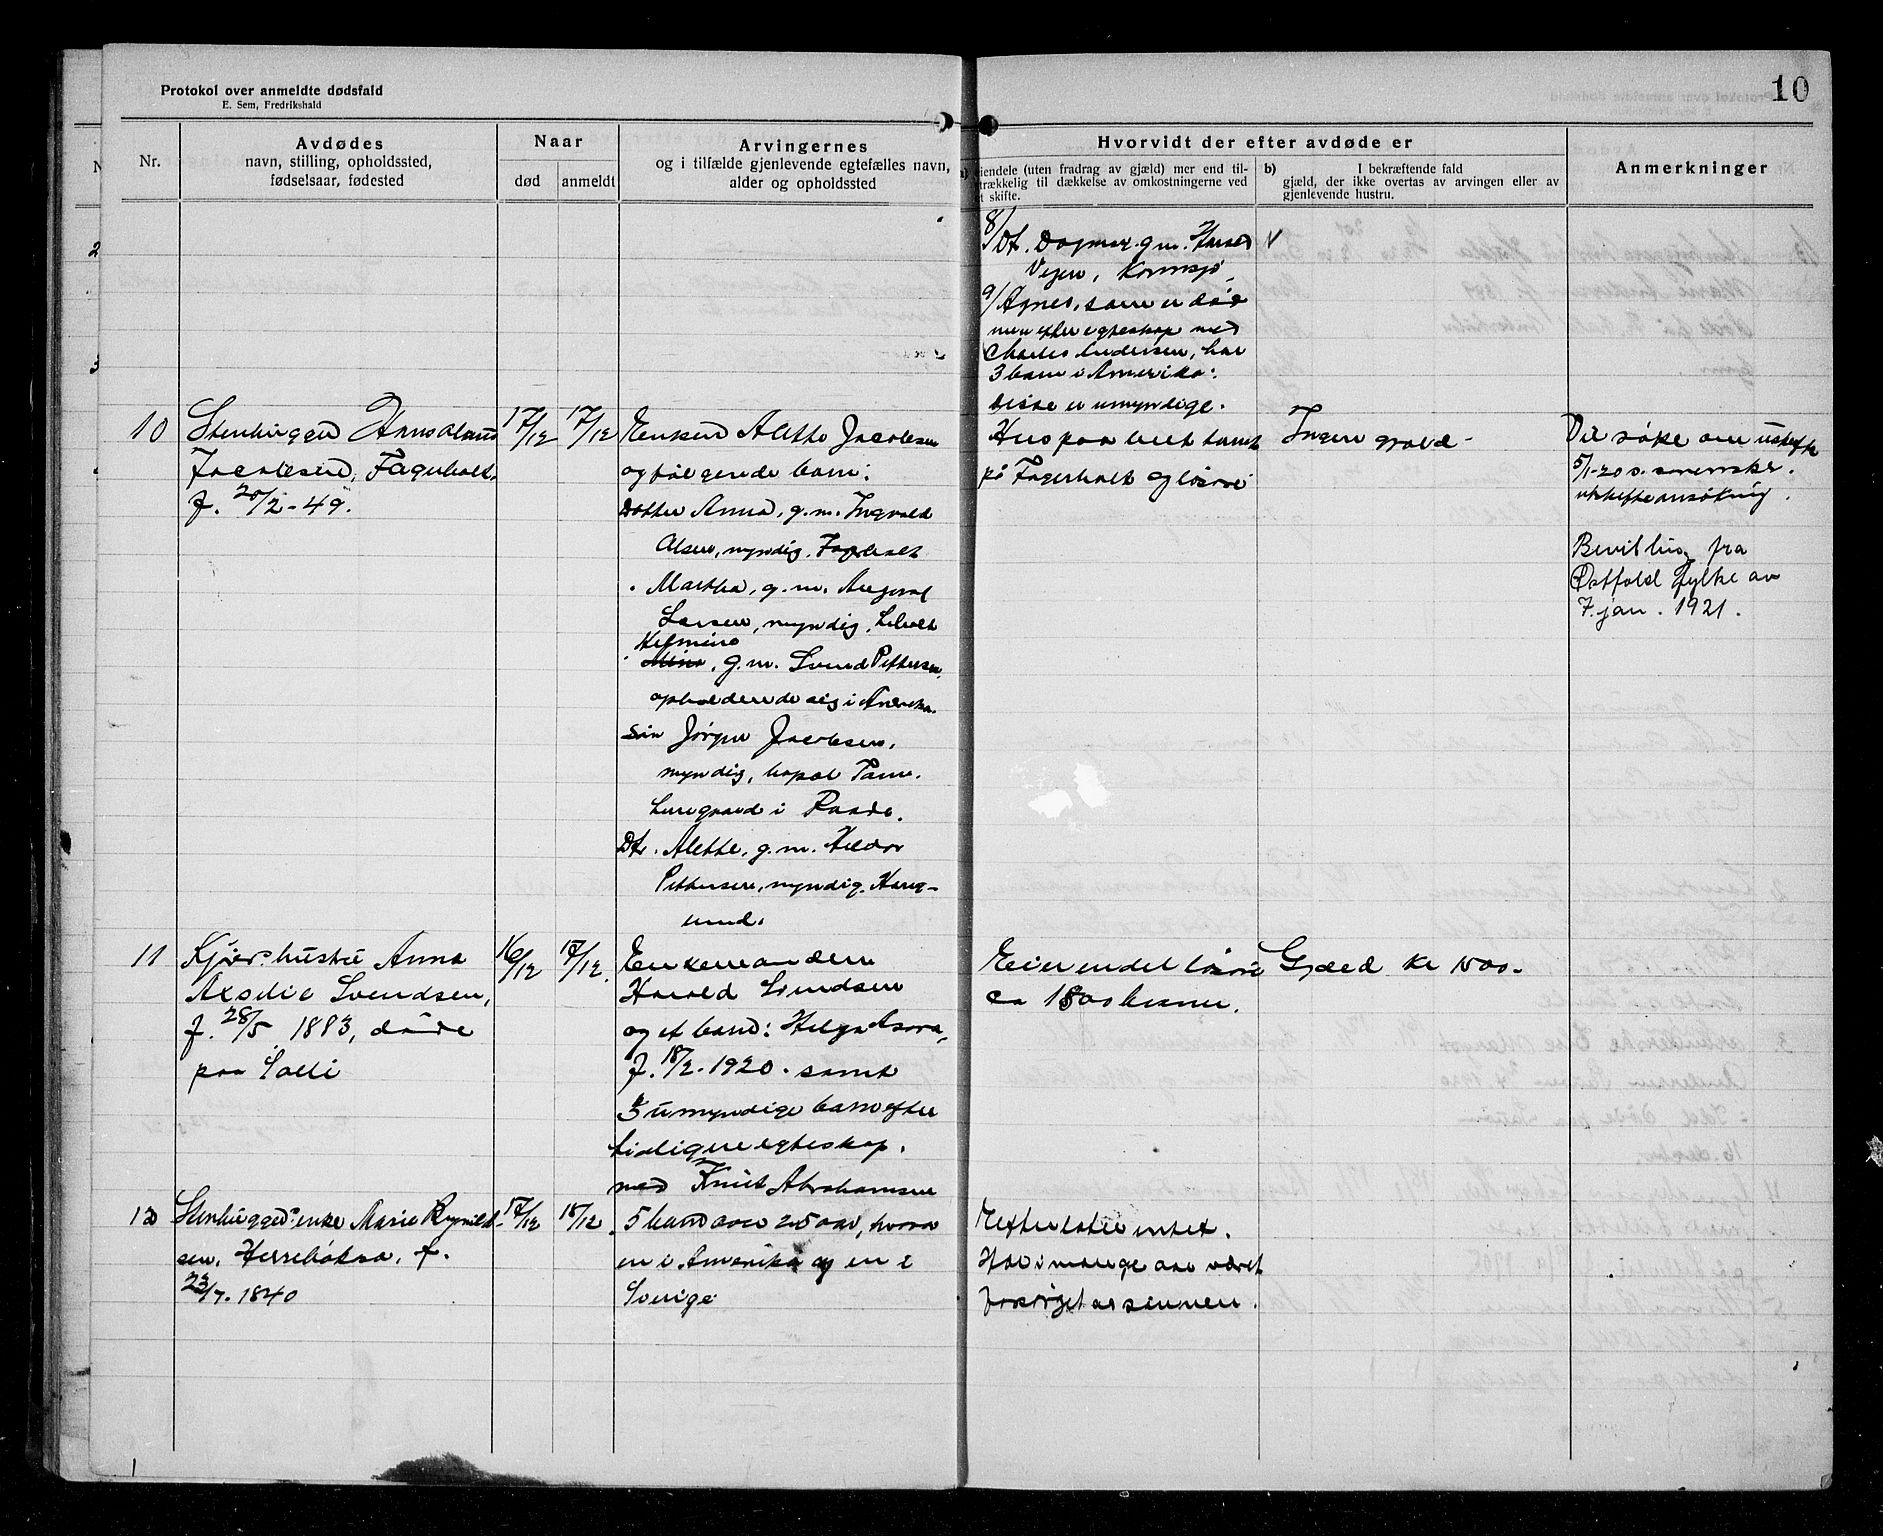 Protokol over anmeldte dødsfald
E. Sem, Fredrikshald
10
Nr.
Avdødes
navn, stilling, opholdssted,
fødselsaar, fødested
Naar
død
anmeldt
Arvingernes
og i tilfælde gjenlevende egtefælles navn,
alder og opholdssted
Hvorvidt der efter avdøde er
iendele (uten fradrag av gjæld) mer end til-
trækkelig til dækkelse av omkostningerne ved
t skifte.
b) I bekræftende fald
gjæld, der ikke overtas av arvingen eller av
gjenlevende hustru.
Anmerkninger
8/ Dt. Dagmar g.m.
Vejen, Kornsjø
9/ Agnes, som er død
men efter egteskap med
Charles Andersen, har
3 barn i Amerika:
disse er umyndige.
10
Stenhugger Hans
Jacobsen, Fagerholt,
f. 20/2-49.
17/12
17/12
Enken Alette Jacobsen
og følgende barn:
Datter Anna, g.m. Ingvald
Olsen, myndig, Fagerholt
" Martha, g.m.
Larsen, myndig,
Helmine
" Mina, g.m. Svend Pettersen,
opholdende sig i Amerika.
Søn Jørgen Jacobsen,
myndig, bopæl
i Raade.
Dtr. Alette, g.m.
Pettersen, myndig,
sund.
Hus paa leiet tomt
på Fagerholt og løsøre
Ingen gjæld
Vil søke om uskifte
5/1-20 s.
uskifteansøkning.
Bevilling fra
Østfold Fylke av
7. jan. 1921.
11
hustru Anna
Svendsen,
f. 28/5 1883, døde
paa
16/12
17/12.
Enkemanden
Harald Svendsen
og et barn: Helga
f. 18/2-1920. samt
5 umyndige barn efter
tidligere egteskap.
med Knut Abrahamsen
Eier endel løsøre
ca 1800 kroner.
Gjæld kr 1500.-
12
Stenhuggerenke Marie
sen, Herrebøkasa, f.
23/7. 1840
17/12
18/12.
5 barn over 25 aar, hvorav
en i Amerika og en i
Sverige
Efterlater intet.
Har i mange aar været
forsørget av sønnen.